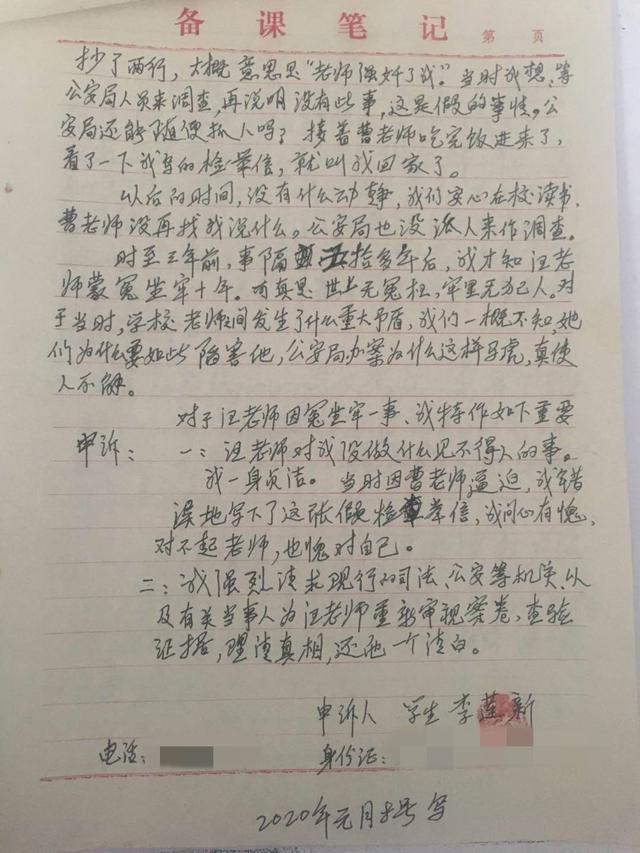 备课笔记
第 页
抄了两行，大概意思是“老师强奸了我”。当时我想，等
公安局人员来调查，再说明没有些事，这是假的事情。公
安局还能随便抓人吗？接着曹老师吃完饭进来了，
看了一下我写的检举信，就叫我回家了。
以后的时间，没有什么动静，我们安心在校读书，
曹老师没再找我说什么。公安局也没派人来作调查。
时至三年前，事隔五拾多年后，我才知汪老
师蒙冤坐牢十年。有真是世上无冤枉，牢里无犯人。对
于当时，学校老师之间发生了什么重大矛盾，我们一概不知，她
们为什么要如些陷害他，公安局办案为什么这样马虎，真使
人不解。
对于汪老师因冤坐牢一事，我特作如下重要
申诉：一：汪老师对我没做什么见不得人的事。
我一身贞洁。当时因曹老师逼迫，我错
误地写下了这张假检举信，我问心有愧，
对不起老师，也愧对自己。
二：我强烈请求现行的司法、公安等机关、以
及有关当事人为汪老师重新审视案卷，查验
证据，理清真相，还他一个清白。
申诉人 学生 李莲新
电话： 身份证：
2020年元月 号写